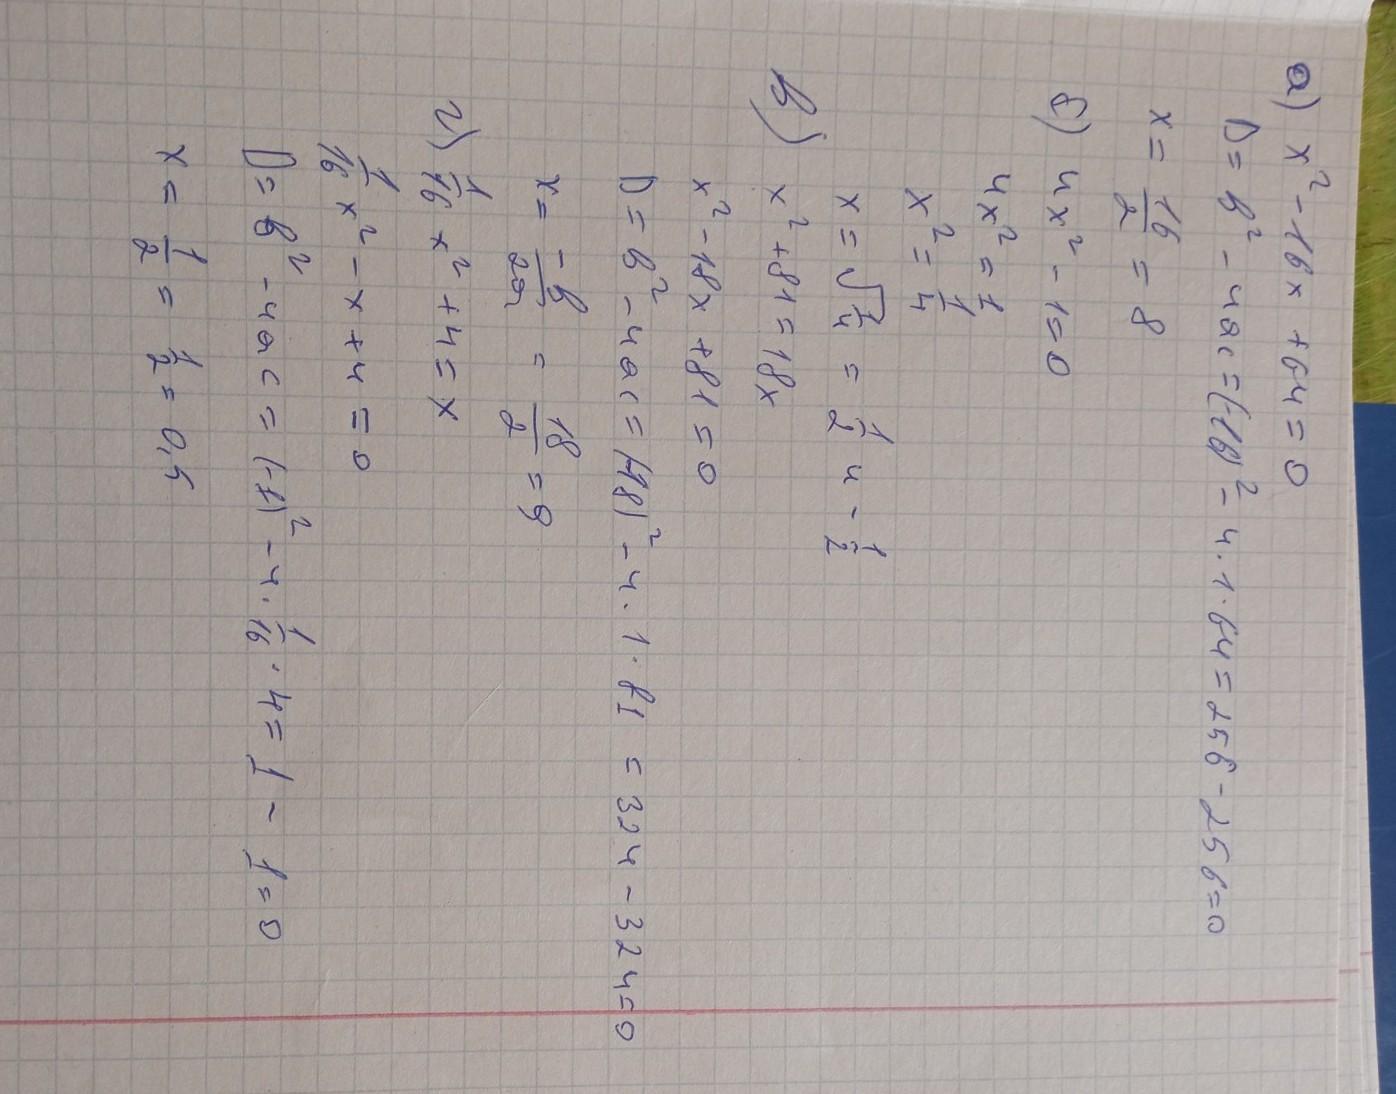 а) x² - 16x + 64 = 0
D = b² - 4ac = (-16)² - 4 · 1 · 64 = 256 - 256 = 0
x = 16/2 = 8
б) 4x² - 1 = 0
4x² = 1
x² = 1/4
x = √1/4 = 1/2 и - 1/2
в) x² + 81 = 18x
x² - 18x + 81 = 0
D = b² - 4ac = (-18)² - 4 · 1 · 81 = 324 - 324 = 0
x = -b/2a = 18/2 = 9
г) 1/16 x² + 4 = x
1/16 x² - x + 4 = 0
D = b² - 4ac = (-1)² - 4 · 1/16 · 4 = 1 - 1 = 0
x = 1/2 = 1/2 = 0,5